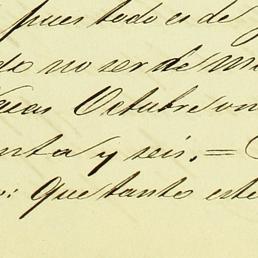 pues todo es de
do no ser de
Octubre on
nta y seis. =
: Que tanto este